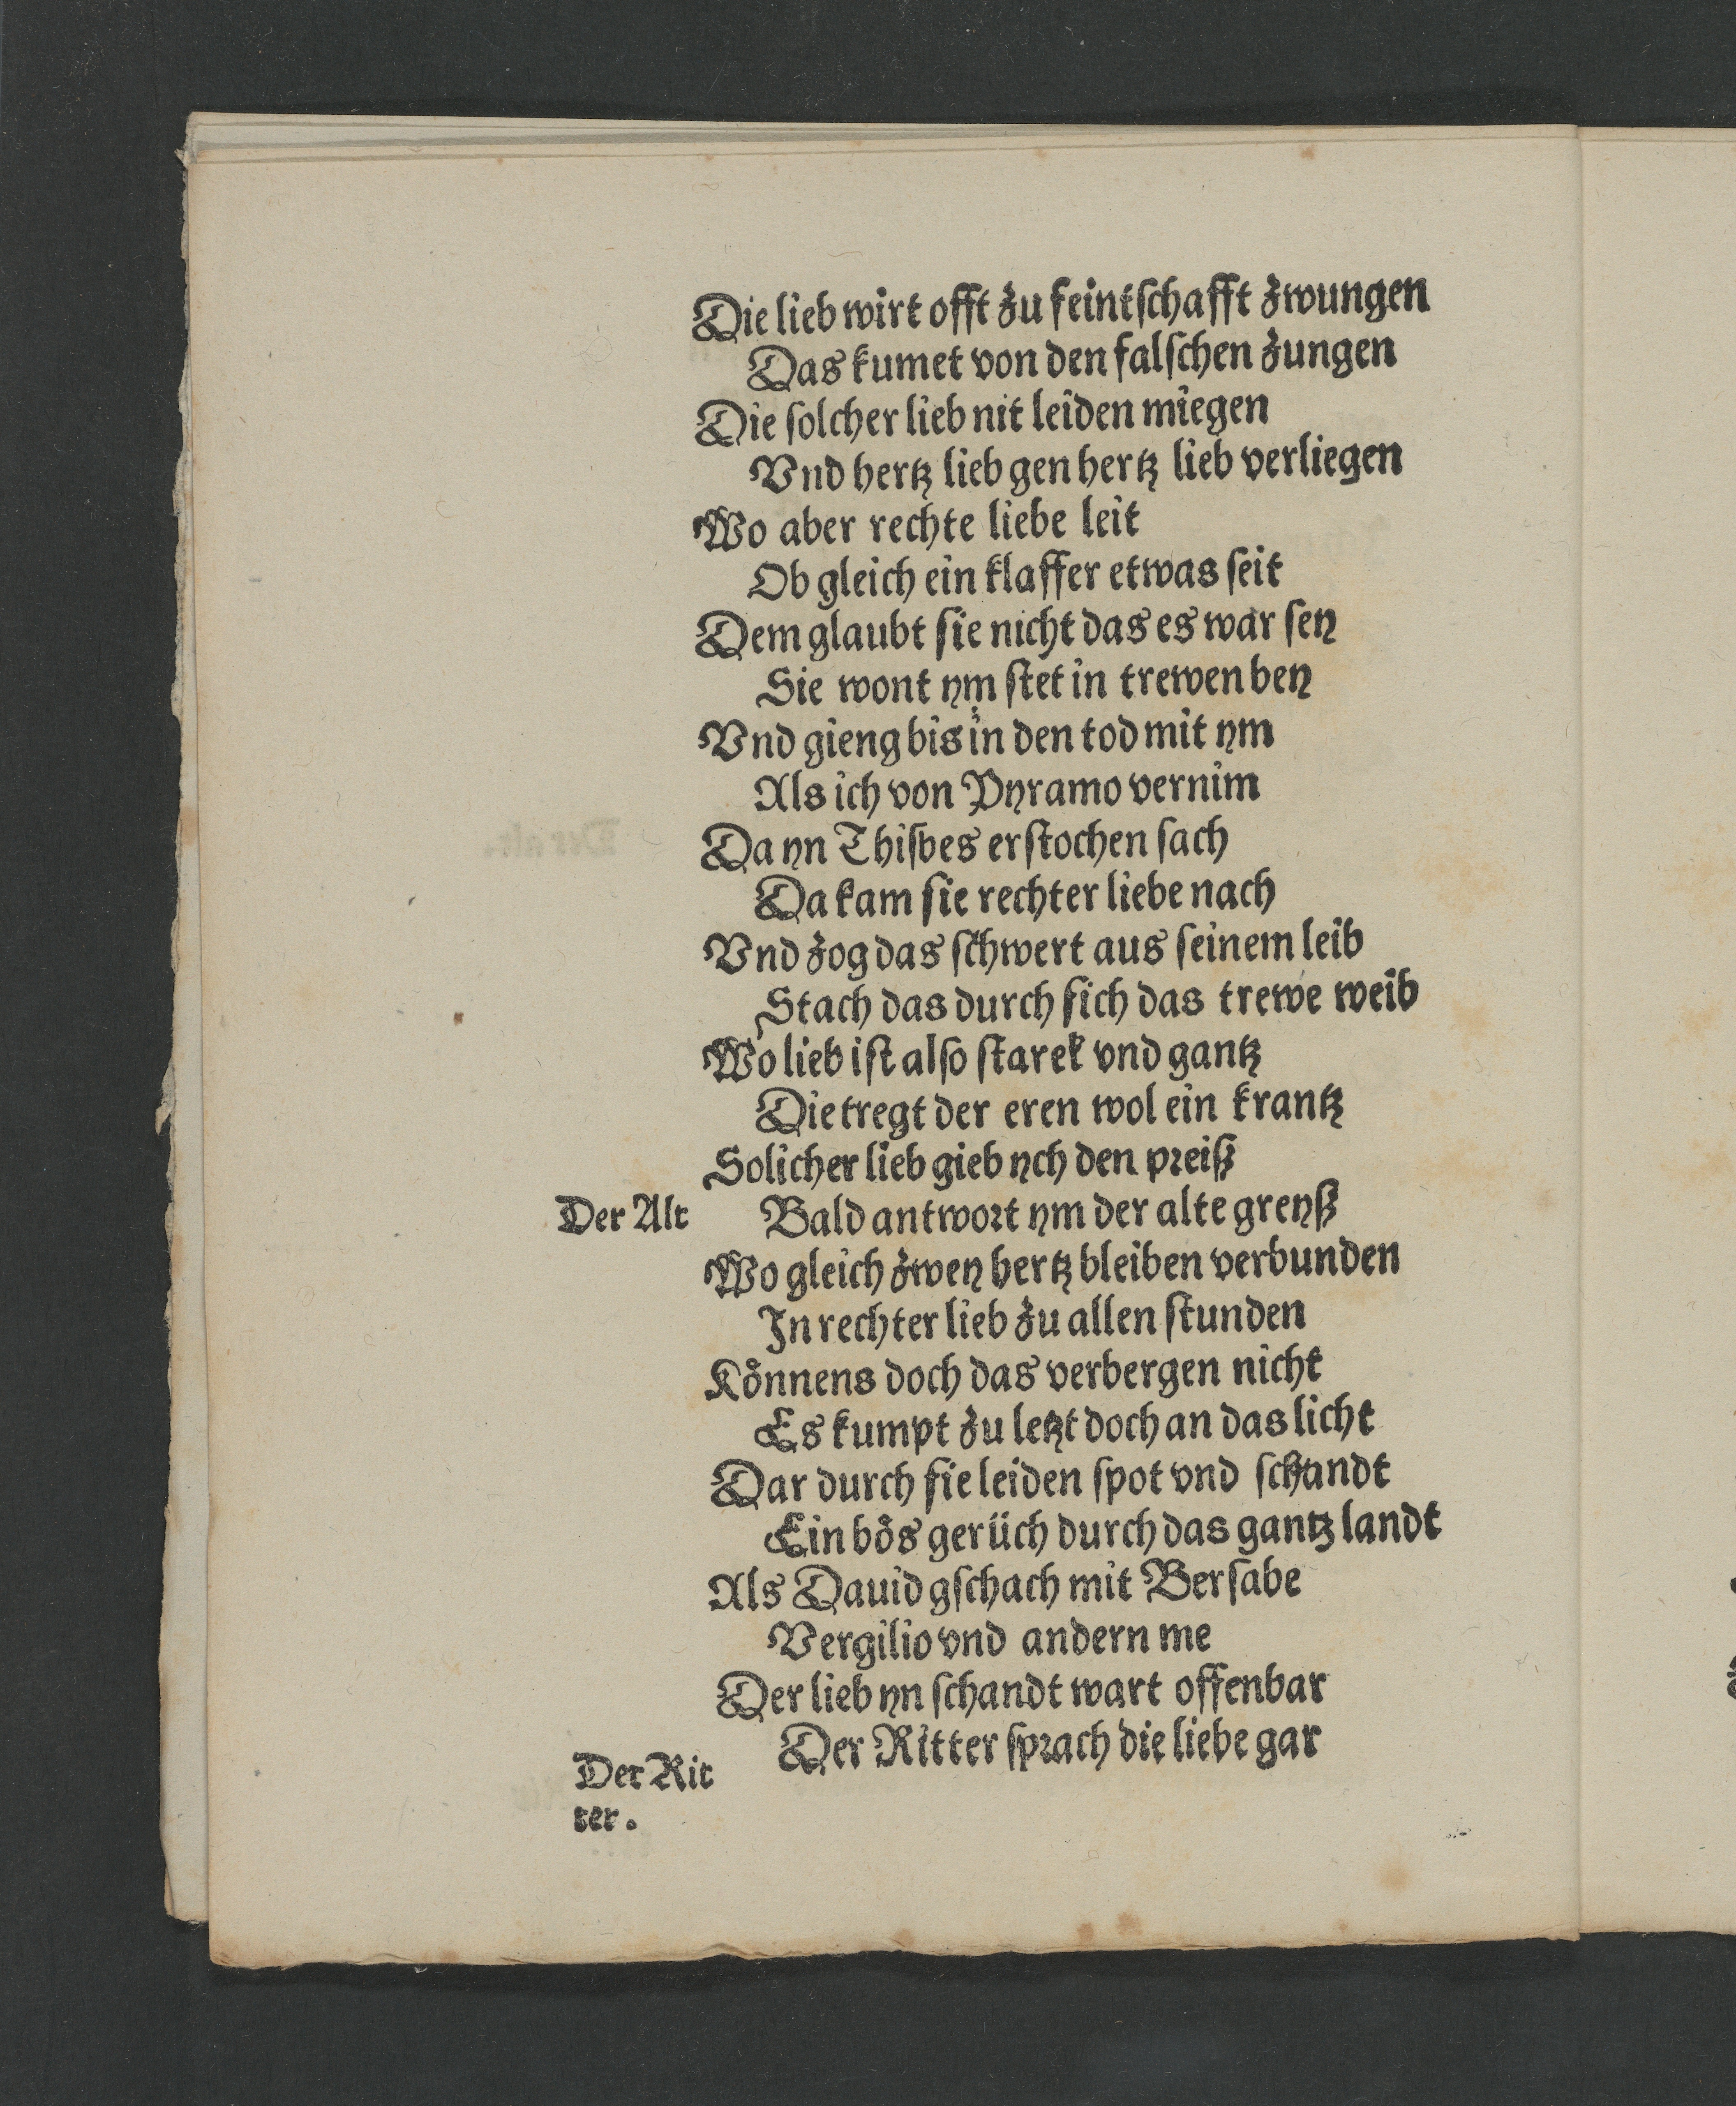 Die lieb wirt offt zu feintſchafft zwungen
Das kumet von den falſchen zungen
Die ſolcher lieb nit leiden miegen
Vnd hertz lieb gen hertz lieb verliegen
Wo aber rechte liebe leit
Ob gleich ein klaffer etwas ſeit
Dem glaubt ſie nicht das es war ſey
Sie wont ym ſtet in trewen bey
Vnd gieng bis in den tod mit ym
Als ich von Pyramo vernim
Da yn Thiſbes erſtochen ſach
Da kam ſie rechter liebe nach
Vnd zog das ſchwert aus ſeinem leib
Stach das durch ſich das trewe weib
Wo lieb iſt alſo ſtarck vnd gantz
Die tregt der eren wol ein krantz
Solicher lieb gieb ych den preiß
Der Alt Bald antwort ym der alte greyß
Wo gleich zwey hertz bleiben verbunden
In rechter lieb zu allen ſtunden
Koͤnnens doch das verbergen nicht
Es kumpt zu letzt doch an das licht
Dar durch ſie leiden ſpot vnd ſchandt
Ein boͤs gerüch durch das gantz landt
Als Dauid gſchach mit Berſabe
Vergilio vnd andern me
Der lieb yn ſchandt wart offenbar
Der Ritter ſprach die liebe gar
Der Rit
ter.